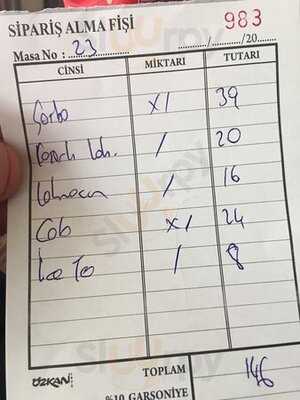 SİPARİŞ ALMA FİŞİ 983
Masa No : 23 ....../....../20.....
CİNSİ MİKTARI TUTARI
Çorba X1 39
Lah. / 20
Lahmacun / 16
Cob X1 24
Ice Tea / 8
ÖZKAN TOPLAM 146
%10 GARSONİYE